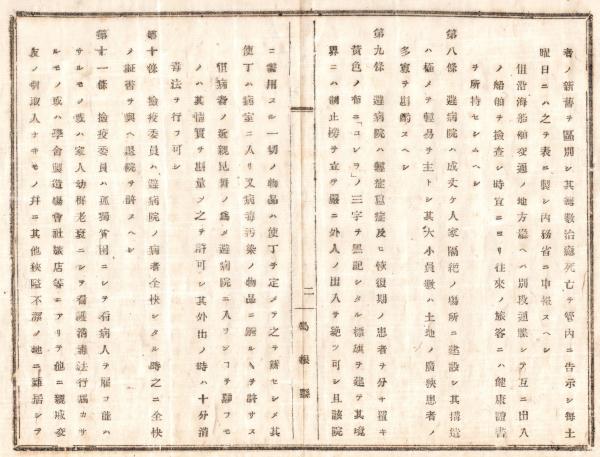 者ノ新舊ヲ區別シ其總數治癒死亡ヲ管内ニ告示シ毎土
曜日ニハ之ヲ表ニ製シ内務省ニ申報スヘシ
但沿海船舶交通ノ地方廳ヘハ別段通牒シテ互ニ出入
ノ船舶ヲ檢査シ時宜ニヨリ往來ノ旅客ニハ健康證書
ヲ所持セシムヘシ
第八條 避病院ハ成丈ケ人家隔絶ノ場所ニ建設シ其搆造
ハ極メテ輕易ヲ主トシ其大小員數ハ土地ノ廣狹患者ノ
多寡ヲ斟酌スヘシ
第九條 避病院ハ輕症重症及ヒ恢復期ノ患者ヲ分チ置キ
黄色ノ布ニ「コレラ」ノ三字ヲ黑記シタル標旗ヲ建テ其境
界ニハ制止榜ヲ立テ嚴ニ外人ノ出入ヲ絶ツ可シ且該院
二
島根縣
ニ需用スル一切ノ物品ハ使丁ヲ定メテ之ヲ辨セシメ其
使丁ハ病室ニ入リ又病毒汚染ノ物品ニ觸ルヽヲ許サス
但病者ノ近親見舞ノ爲メ避病院ニ入ランコヲ願フモ
ノハ其情實ヲ斟量シ之ヲ許可シ其外出ノ時ハ十分消
毒法ヲ行フ可シ
第十條 檢疫委員ハ避病院ノ病者全快シタル時之ニ全快
ノ証書ヲ與ヘ退院ヲ許スヘシ
第十一條 檢疫委員ハ孤獨貧困ニシテ看病人ヲ雇フ能ハ
サルモノ或ハ家人幼稚老衰ニシテ看護消毒法行屆カサ
ルモノ或ハ學舍製造場會社旅店等ニアリテ他ニ親戚交
友ノ引取人ナキモノ幷ニ其他狹隘不潔ノ地ニ雜居シテ